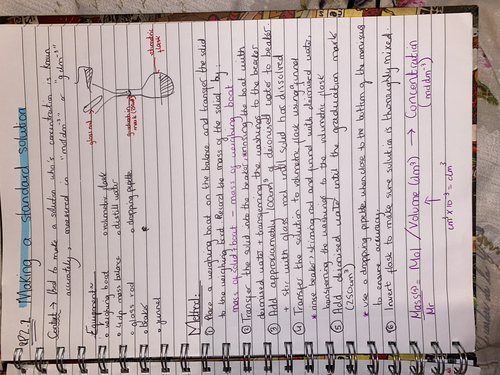 PP2.1 Making a standard solution
Context → Had to make a solution who's concentration is known
accurately, measured in "moldm⁻³" or "gdm⁻³"
Equipment:
o weighing boat
o volumetric flask
o 2 dp mass balance
o distill water
o glass rod
o dropping pipette
o beaker
o funnel
glass rod
graduation
mark (line)
volumetric
flask
Method:
① Place a weighing boat on the balance and transfer the solid
to the weighing boat. Record the mass of the solid by:
mass of solid + boat - mass of weighing boat
② Transfer the solid into the beaker, rinsing the boat with
deionised water + transferring the washings to the beaker
③ Add approximately 100cm³ of deionised water to beaker
+ stir with glass rod until solid has dissolved
④ Transfer the solution to volumetric flask using funnel
* rinse beaker, stirring rod and funnel with deionised water,
transferring the washings to the volumetric flask
⑤ Add deionised water until the graduation mark
(250cm³)
* Use a dropping pipette when close to the bottom of the meniscus
to ensure accuracy.
⑥ Invert flask to make sure solution is thoroughly mixed.
Mass(g)
Mr
Mol / Volume (dm³) → Concentration
(moldm⁻³)
cm³ x10⁻³ = dm³